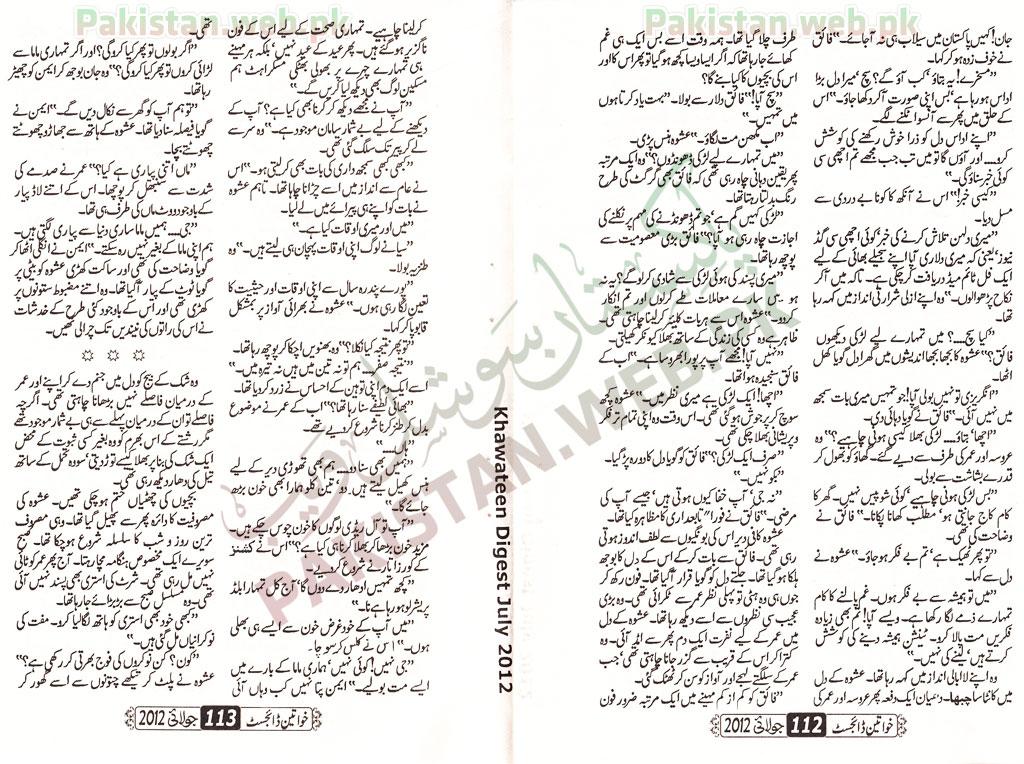 Pakistan.web.pk
Pakistan.web.pk
جان! کہیں پاکستان میں سیلاب ہی نہ آ جائے۔“ فائق
نے خوف زدہ ہو کر کہا۔
”مسخرے! یہ بتاؤ‘ کب آؤ گے؟ سچ‘ میرا دل بڑا
اداس ہو رہا ہے‘ بس اپنی صورت آ کر دکھا جاؤ۔“ اس
کے حلق میں پھر سے آنسو اٹکنے لگے۔
”اپنے اداس دل کو ذرا خوش رکھنے کی کوشش
کرو.... اور آؤں گا تو میں تب جب مجھے تم اچھی سی
کوئی خبر سناؤ گی۔“
”کیسی خبر!“ اس نے آنکھ کا کونا بے دردی سے
مسل دیا۔
”میری دلہن تلاش کرنے کی خبر‘ کوئی اچھی سی گڈ
نیوز‘ یعنی کہ میری دلاری آپا اپنے چھیلے بھائی کے لیے
ایک فل ٹائم میڈ دریافت کر چکی ہے۔ تاکہ میں آ کر
نکاح پڑھوالوں۔“ وہ اپنے ازلی شرارتی انداز میں کہہ رہا
تھا۔
”کیا سچ....؟ میں تمہارے لیے لڑکی دیکھوں
فائق؟“ عشوہ کا بجھا بجھا اندیشوں میں گھرا دل گویا کھل
اٹھا۔
”انگریزی تو نہیں بولی آپا! جو تمہیں میری بات سمجھ
میں نہیں آئی۔“ فائق نے گویا دہائی دی۔
”اچھا‘ بتاؤ.... لڑکی بھلا کیسی ہونی چاہیے؟“ وہ
عروسہ اور عمر کی طرف سے دیے گئے۔ گھاؤ کو بھول کر
قدرے بشاشت سے بولی۔
”بس لڑکی ہونی چاہیے‘ کوئی شو پیس نہیں۔ گھر کا
کام کاج جانتی ہو‘ مطلب کھانا پکانا۔“ فائق نے
وضاحت کی تھی۔
”تو پھر ٹھیک ہے‘ تم بے فکر ہو جاؤ۔“ عشوہ نے
دل سے کہا۔
”میں تو ہمیشہ سے بے فکر ہوں۔ غم پالنے کا کام
تمہارے ذمے لگا رکھا ہے۔ ویسے آپا! تم بھی زیادہ
فکریں مت پالا کرو۔ ٹینشن ہمیشہ دینے کی کوشش
کرتے ہیں‘ لینے کی نہیں۔“
وہ اپنے لاابالی انداز میں کہہ رہا تھا۔ عشوہ کے دل
میں کانٹا سا چبھا۔ دھیان ایک دفعہ پھر عروسہ اور عمر کی
طرف چلا گیا تھا۔ ہمہ وقت اسے بس ایک ہی غم
کھائے جا رہا تھا کہ اگر ایسا ویسا کچھ ہو گیا تو پھر اس کا اور
اس کی بچیوں کا کیا بنے گا؟
”سچ آپا!“ فائق دلار سے بولا۔ ”بہت یاد کرتا ہوں
میں تمہیں۔“
”اب مکھن مت لگاؤ۔“ عشوہ ہنس پڑی۔
”میں تمہارے لیے لڑکی ڈھونڈوں؟“ وہ ایک مرتبہ
پھر یقین دہانی چاہ رہی تھی کہ فائق بھی گرگٹ کی طرح
رنگ بدلتا رہتا تھا۔
”لڑکی کہیں گم ہے‘ جو تم ڈھونڈنے کی مہم پر نکلنے کی
اجازت چاہ رہی ہو آپا؟“ فائق بڑی معصومیت سے
پوچھ رہا تھا۔
”میری پسند کی ہوئی لڑکی سے شادی کرلو گے؟ یہ نہ
ہو میں سارے معاملات طے کرلوں اور تم انکار
کردو۔“ عشوہ اس سے ہر بات کلیئر کر لینا چاہتی تھی۔
ظاہر ہے وہ کسی کی زندگی کے ساتھ بھلا کیونکر کھیلتی۔
”نہیں آپا! مجھے آپ پر پورا بھروسا ہے۔“ اب کے
فائق سنجیدہ ہوا تھا۔
”اچھا! ایک لڑکی ہے میری نظر میں۔“ عشوہ کچھ
سوچ کر پر جوش ہو گئی تھی۔ اس وقت وہ اپنی تمام تر فکر
و پریشانی بھلا چکی تھی۔
”صرف ایک لڑکی؟“ فائق کو گویا دل کا دورہ پڑ گیا۔
”بکو نہیں۔“
”نہ جی‘ آپ خفا کیوں ہوتی ہیں‘ جیسے آپ کی
مرضی۔“ فائق نے فوراً تابعداری کا مظاہرہ کیا تھا۔
عشوہ کافی دیر اس کی بونگیوں سے لطف اندوز ہوتی
رہی تھی۔ فائق سے بات کر کے اس کے دل کا بوجھ
ہلکا ہو گیا تھا۔ جلتے دل کو گویا قرار آ گیا تھا۔ فون رکھ کر
جوں ہی وہ ہٹی تو پہلی نظر عمر سے ٹکرائی تھی۔ وہ بڑی
عجیب سی نظروں سے اسے دیکھ رہا تھا۔ عشوہ کے دل
میں عمر کے لیے نفرت ایک دم پھر سے امڈ آئی۔ وہ
کترا کر اس کے قریب سے گزر جانا چاہتی تھی‘ جب
عمر کے سلگتے لہجے اور آواز کو سن کر ٹھٹک گئی۔
”فائق کو کم از کم مہینے میں ایک مرتبہ ضرور فون
خواتین ڈائجسٹ 112 جولائی 2012
Khawateen Digest July 2012
PAKISTAN.WEB.PK
کر لینا چاہیے۔ تمہاری صحت کے لیے اس کے فون
ناگزیر ہو گئے ہیں۔ پھر عید کے عید نہیں‘ بلکہ ہر مہینے
ہی تمہارے چہرے پر بھولی بھٹکی مسکراہٹ ہم
مسکین لوگ بھی دیکھ لیا کریں گے۔“
”آپ نے مجھے دیکھ کر کرنا بھی کیا ہے؟ آپ کے
دیکھنے کے لیے بے شمار سامان موجود ہے۔“ وہ سر سے
لے کر پیر تک سلگ گئی تھی۔
”کبھی کبھی سمجھ داری کی بات بھی کر لیتی ہو۔“ اس
نے عام سے انداز میں اسے چڑانا چاہا تھا۔ تاہم عشوہ
نے بات کو اپنے ہی پیرائے میں لے لیا۔
”میں اور میری اوقات کیا ہے۔“
”سیانے لوگ اپنی اوقات پہچان ہی لیتے ہیں۔“ وہ
طنزیہ بولا۔
”پورے پندرہ سال سے اپنی اوقات اور حیثیت کا
تعین لگا رہی ہوں۔“ عشوہ نے بھرائی آواز پر بمشکل
قابو پا کر کہا۔
”تو پھر نتیجہ کیا نکلا؟“ وہ بھنویں اچکا کر پوچھ رہا تھا۔
”نتیجہ صفر.... ہم تو نہ تین میں ہیں نہ تیرہ میں۔“
اسے ایک دم اپنی توہین کے احساس نے زرد کر دیا تھا۔
”بھائی لطیفے سنا رہا تھا؟“ اب کے عمر نے موضوع
بدل کر طنز کرنا شروع کر دیے تھے۔
”ہاں۔“
”ہمیں بھی سنا دو.... ہم بھی تھوڑی دیر کے لیے
ہنس کھیل لیتے ہیں۔ دو تین کلو ہمارا بھی خون بڑھ
جائے گا۔“
”آپ تو آل ریڈی لوگوں کا خون چوس چکے ہیں۔
مزید خون بڑھا کر بھلا کرنا ہی کیا ہے؟“ اس نے کشنز
کے کور زاتارنے شروع کر دیے۔
”کچھ تمہیں ادھار دے دوں گا‘ آج کل تمہارا بلڈ
پریشر لو ہو رہا ہے نا۔“
”میں آپ کے خود غرض خون سے ایسے ہی بھلی
ہوں۔“ اس نے کلس کر سوچا۔
”جی نہیں! کوئی نہیں‘ ہماری ماما کے بارے میں
ایسے مت بولیے۔“ ایمن پتا نہیں کب وہاں آئی
تھی۔
”اگر بولوں تو پھر کیا کرو گی؟ اور اگر تمہاری ماما سے
لڑائی کروں تو پھر کیا کرو گی؟“ وہ جان بوجھ کر ایمن کو چھیڑ
رہا تھا۔
”تو ہم آپ کو گھر سے نکال دیں گے۔“ ایمن نے
گویا فیصلہ سنا دیا تھا۔ عشوہ کے ہاتھ سے جھاڑو چھوٹتے
چھوٹتے بچا۔
”ماں اتنی پیاری ہے کیا؟“ عمر نے صدمے کی
شدت سے سنبھل کر پوچھا۔ اس کے اتنے لاڈ پیار
کے باوجود ووٹ ماں کی طرف ہی تھا۔
”جی.... ہمیں ماما ساری دنیا سے پیاری لگتی ہیں۔
ہم اپنی ماما کے بغیر نہیں رہ سکتے۔“ ایمن نے انگلی اٹھا کر
گویا وضاحت کی تھی اور ساکت کھڑی عشوہ کو بیٹی پر
گویا ٹوٹ کے پیار آ گیا تھا۔ وہ اتنے مضبوط ستونوں پر
کھڑی تھی اور اس کے باوجود کئی طرح کے خدشات
نے اس کی راتوں کی نیندیں تک چرا لی تھیں۔
☼ ☼ ☼
وہ شک کے بیج کو دل میں جنم دے کر اپنے اور عمر
کے درمیان فاصلے نہیں بڑھانا چاہتی تھی۔ اگرچہ
فاصلے تو ان کے درمیان پہلے سے ہی بے شمار موجود تھے
مگر رشتے کے اس بھرم کو وہ بغیر کسی ثبوت کے محض
ایک شک کی بنا پر بھلا کیسے توڑ دیتی‘ سو وہ تحمل کے ساتھ
تیل کی دھار دیکھ رہی تھی۔
بچیوں کی چھٹیاں ختم ہو چکی تھیں۔ عشوہ کی
مصروفیت کا دائرہ پھر سے پھیل گیا تھا۔ وہی مصروف
ترین روز و شب کا سلسلہ شروع ہو چکا تھا۔ صبح
سویرے ایک مخصوص ہنگامہ مچا رہتا۔ آج پھر عمر کو ٹائی
نہیں مل رہی تھی۔ شرٹ کی استری بھی پسند نہیں آئی
تھی۔ وہ مسلسل صبح سے بڑبڑائے جا رہا تھا۔
”کبھی خود بھی استری کو ہاتھ لگا لیا کرو۔ مفت کی
نوکرانیاں مل گئی ہیں۔“
”کون؟ کن نوکروں کی فوج بھرتی کر رکھی ہے؟“
عشوہ نے پلٹ کر تیکھے چتونوں سے اسے گھور کر
خواتین ڈائجسٹ 113 جولائی 2012